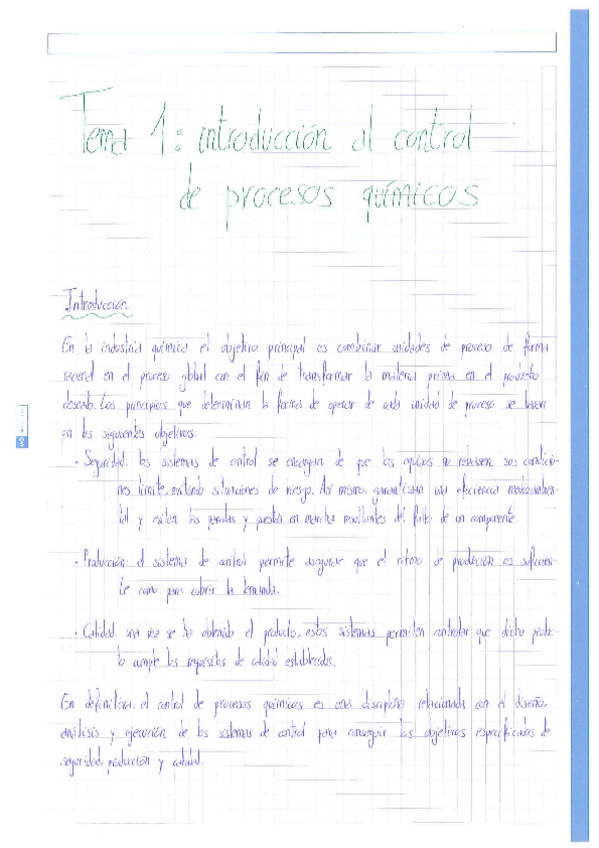 Tema 1: introducción al control
de procesos químicos
Introducción
En la industria química el objetivo principal es combinar unidades de proceso de forma
racional en el proceso global con el fin de transformar la materia prima en el producto
deseado. Los principios que determinan la forma de operar de cada unidad de proceso se basan
en los siguientes objetivos:
· Seguridad: los sistemas de control se encargan de que los equipos no rebasen sus condicio-
nes límite, evitando situaciones de riesgo. Así mismo, garantizan una eficiencia medioambien-
tal y evitan las paradas y puestas en marcha resultantes del fallo de un componente.
· Producción: el sistema de control permite asegurar que el ritmo de producción es suficien-
te como para cubrir la demanda.
· Calidad: una vez se ha obtenido el producto, estos sistemas permiten controlar que dicho produc-
to cumple los requisitos de calidad establecidos.
En definitiva, el control de procesos químicos es una disciplina relacionada con el diseño,
análisis y ejecución de los sistemas de control para conseguir los objetivos especificados de
seguridad, producción y calidad.